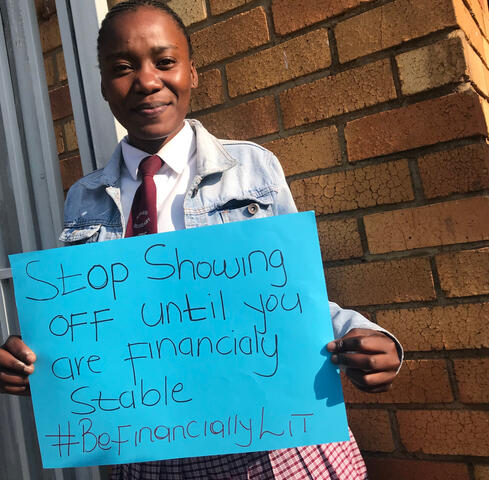 Stop Showing
OFF until you
are Financialy
Stable
#BeFinanciallyLiT